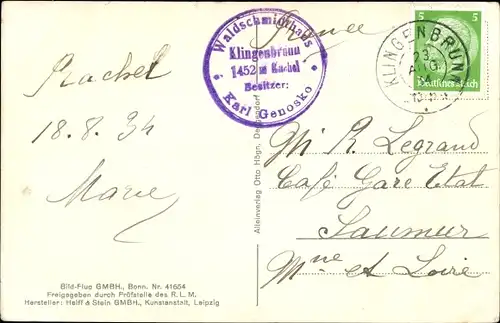 Rachel
18.8.34
Marie
Waldschmidthaus
Klingenbrunn
1452 m Rachel
Besitzer:
Karl Genosko
5 5
Deutsches Reich
KLINGENBRUNN
AUG.
Mr R. Legrand
Café Gare Etat
Saumur
Mne et Loire
Alleinverlag Otto Högn, Deggendorf
Bild-Flug GMBH., Bonn. Nr. 41654
Freigegeben durch Prüfstelle des R. L. M.
Hersteller: Halff & Stein GMBH., Kunstanstalt, Leipzig